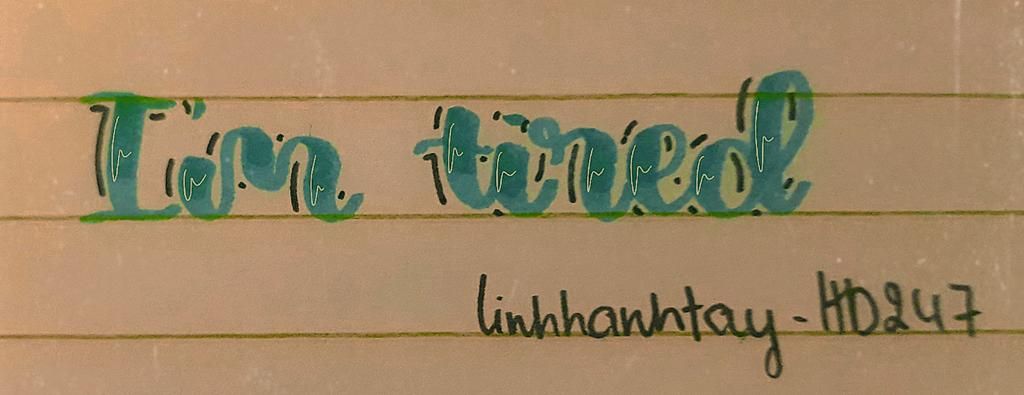 I'm tired
linhhanhtay - HD247